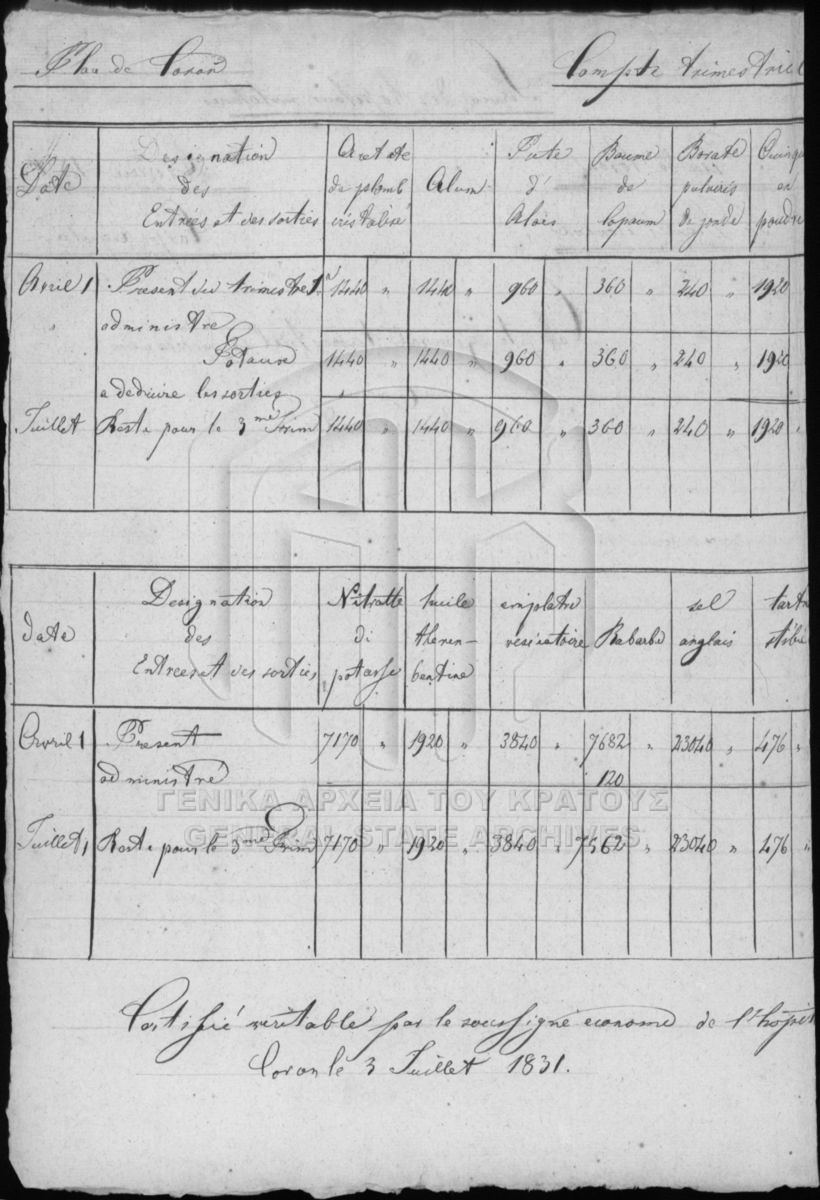 Place de Coron Compte trimestriel
Date Designation des Entrées et des sorties Acetate de plomb cristalisé Alum Pate d' Alois Baume de Copaum Borate pulveris de sonde Quinqu en poudre
Avril 1 Present du trimestre 1 1440 " 1440 " 960 " 360 " 240 " 1920
" administré
Totaux 1440 " 1440 " 960 " 360 " 240 " 1920
a deduire les sorties
Juillet Reste pour le 3me Trim 1440 " 1440 " 960 " 360 " 240 " 1920 "
date Designation des Entrées et des sorties Nitratte di potasse huile theren- bentine emplatre vesicatoire Rabarbe sel anglais tartr stibié
Avril 1 Present 7170 " 1920 " 3840 " 7682 " 23040 " 476 "
administré 120
Juillet 1 Reste pour le 3me Trim 7170 " 1920 " 3840 " 7562 " 23040 " 476 "
ΓΕΝΙΚΑ ΑΡΧΕΙΑ ΤΟΥ ΚΡΑΤΟΥΣ
GENERAL STATE ARCHIVES
Certifié veritable par le soussigné econome de l'hôpit
Coron le 3 Juillet 1831.